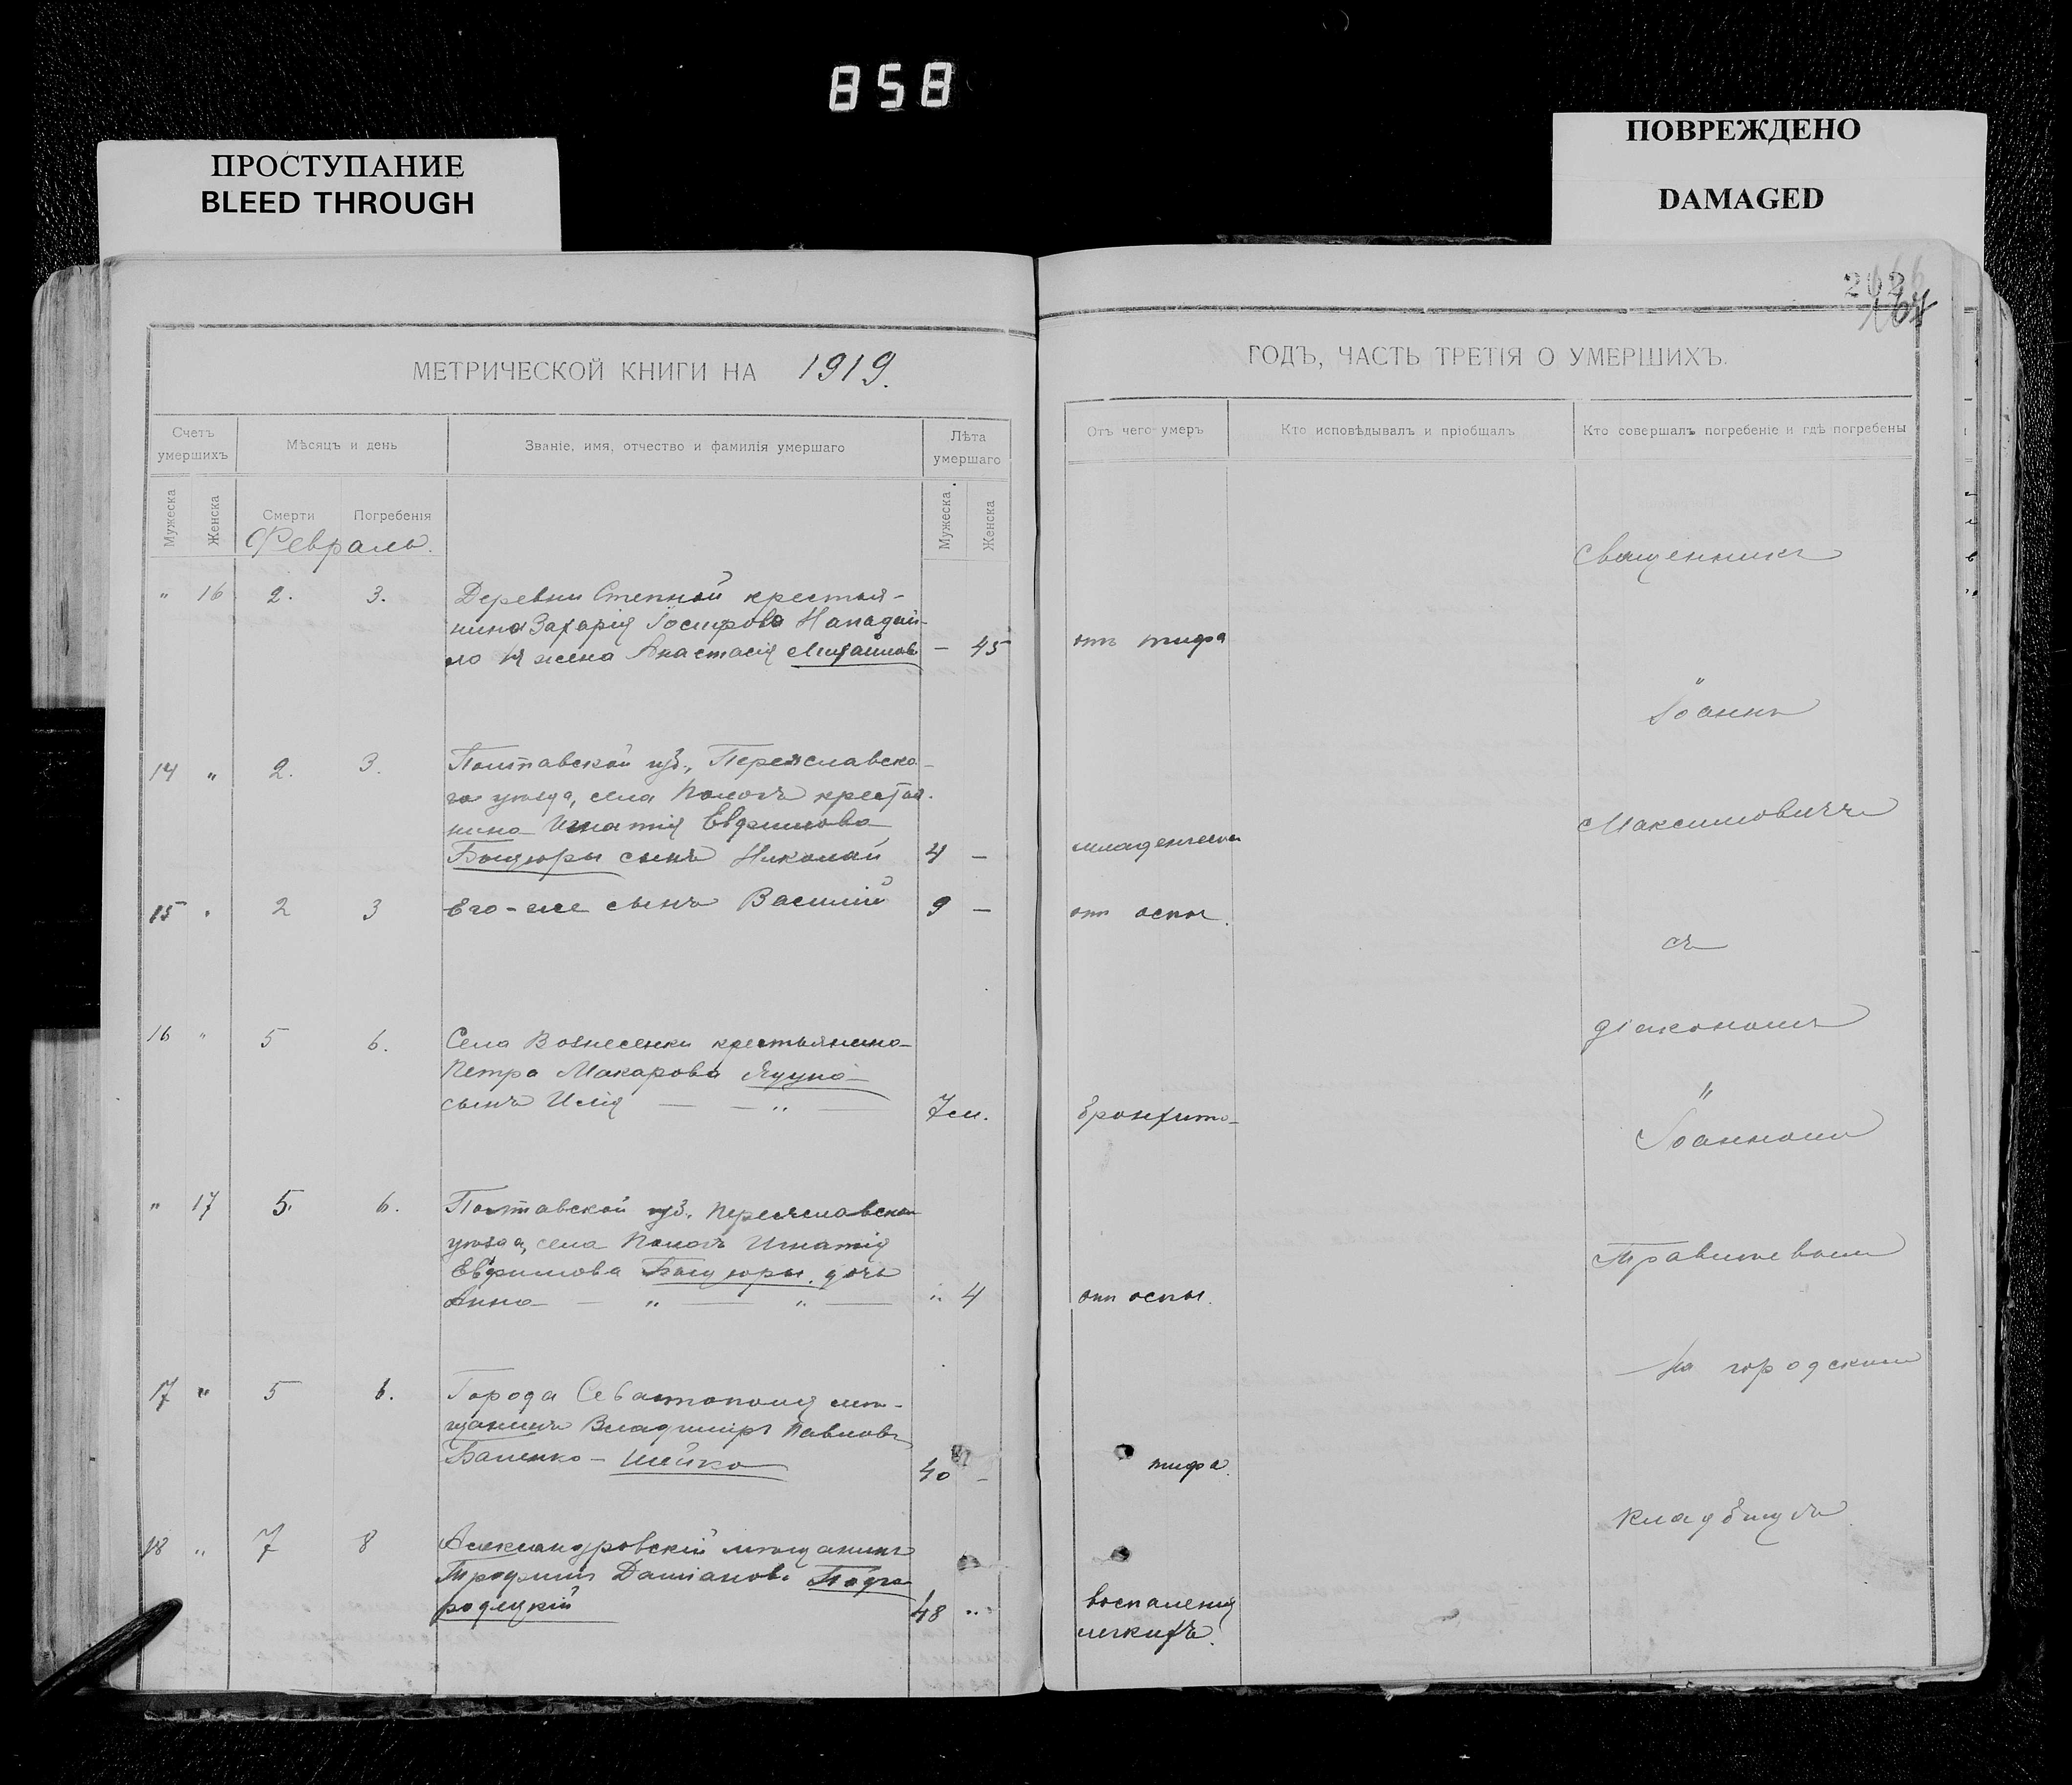 858
ПРОСТУПАНИЕ
BLEED THROUGH
ПОВРЕЖДЕНО
DAMAGED
МЕТРИЧЕСКОЙ КНИГИ НА 1919.
Счетъ умершихъ
Мѣсяцъ и день
Званіе, имя, отчество и фамилія умершаго
Лѣта умершаго
Мужеска
Женска
Смерти
Погребенія
Мужеска
Женска
Февраль.
" 16 2. 3. Деревни Степной крестья-
нина Захарія Іосифова
жена Анастасія Михайлов — 45
14 " 2. 3. Полтавской губ., Переяславско-
го уѣзда, села крестья-
нина Игнатія Евфимова
сынъ Николай 4 —
15 " 2 3 Его-же сынъ Василій 9 —
16 " 5 6. Села Вознесенки крестьянина
Петра Макарова Яцуна
сынъ Илія — — " — 7 м.
" 17 5. 6. Полтавской губ. Переяславскаго
уѣзда, села Игнатія
Евфимова дочь
Анна — " — " — " 4
17 " 5 6. Города Севастополя мѣ-
щанинъ Владиміръ Павловъ
Шейко 40 -
18 " 7 8 Александровскій мѣщанинъ
Трофимъ Даміановъ Подго-
родецкій 48 "
ГОДЪ, ЧАСТЬ ТРЕТІЯ О УМЕРШИХЪ.
Отъ чего умеръ
Кто исповѣдывалъ и пріобщалъ
Кто совершалъ погребеніе и гдѣ погребены
Священникъ
отъ тифа
Іоаннъ
Максимовичъ
отъ оспы.
съ
діакономъ
бронхита
Іоанномъ
отъ оспы.
на городскомъ
тифа.
кладбищѣ.
воспаленія
легкихъ.